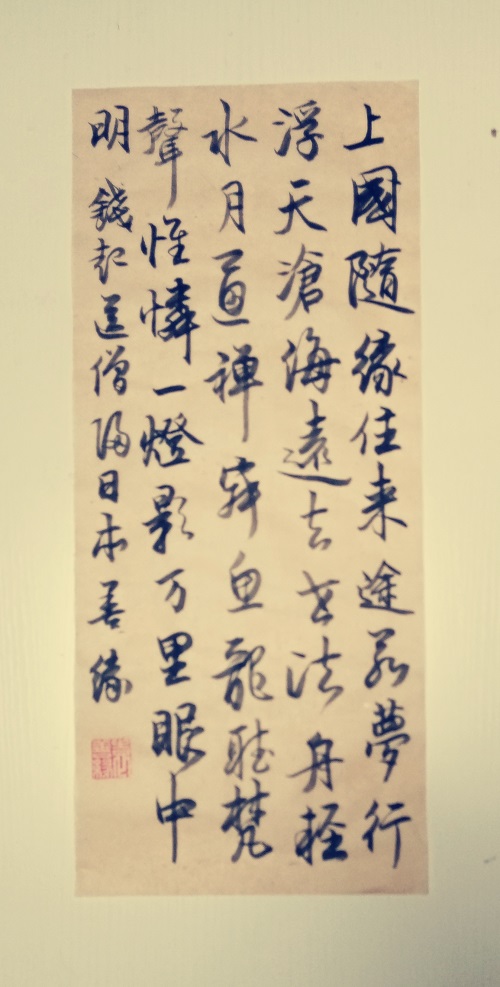 上國隨緣住来途若夢行
浮天滄海遠去世法舟輕
水月通禅寂魚龍聴梵
聲惟憐一燈影万里眼中
明 錢起送僧歸日本善緣